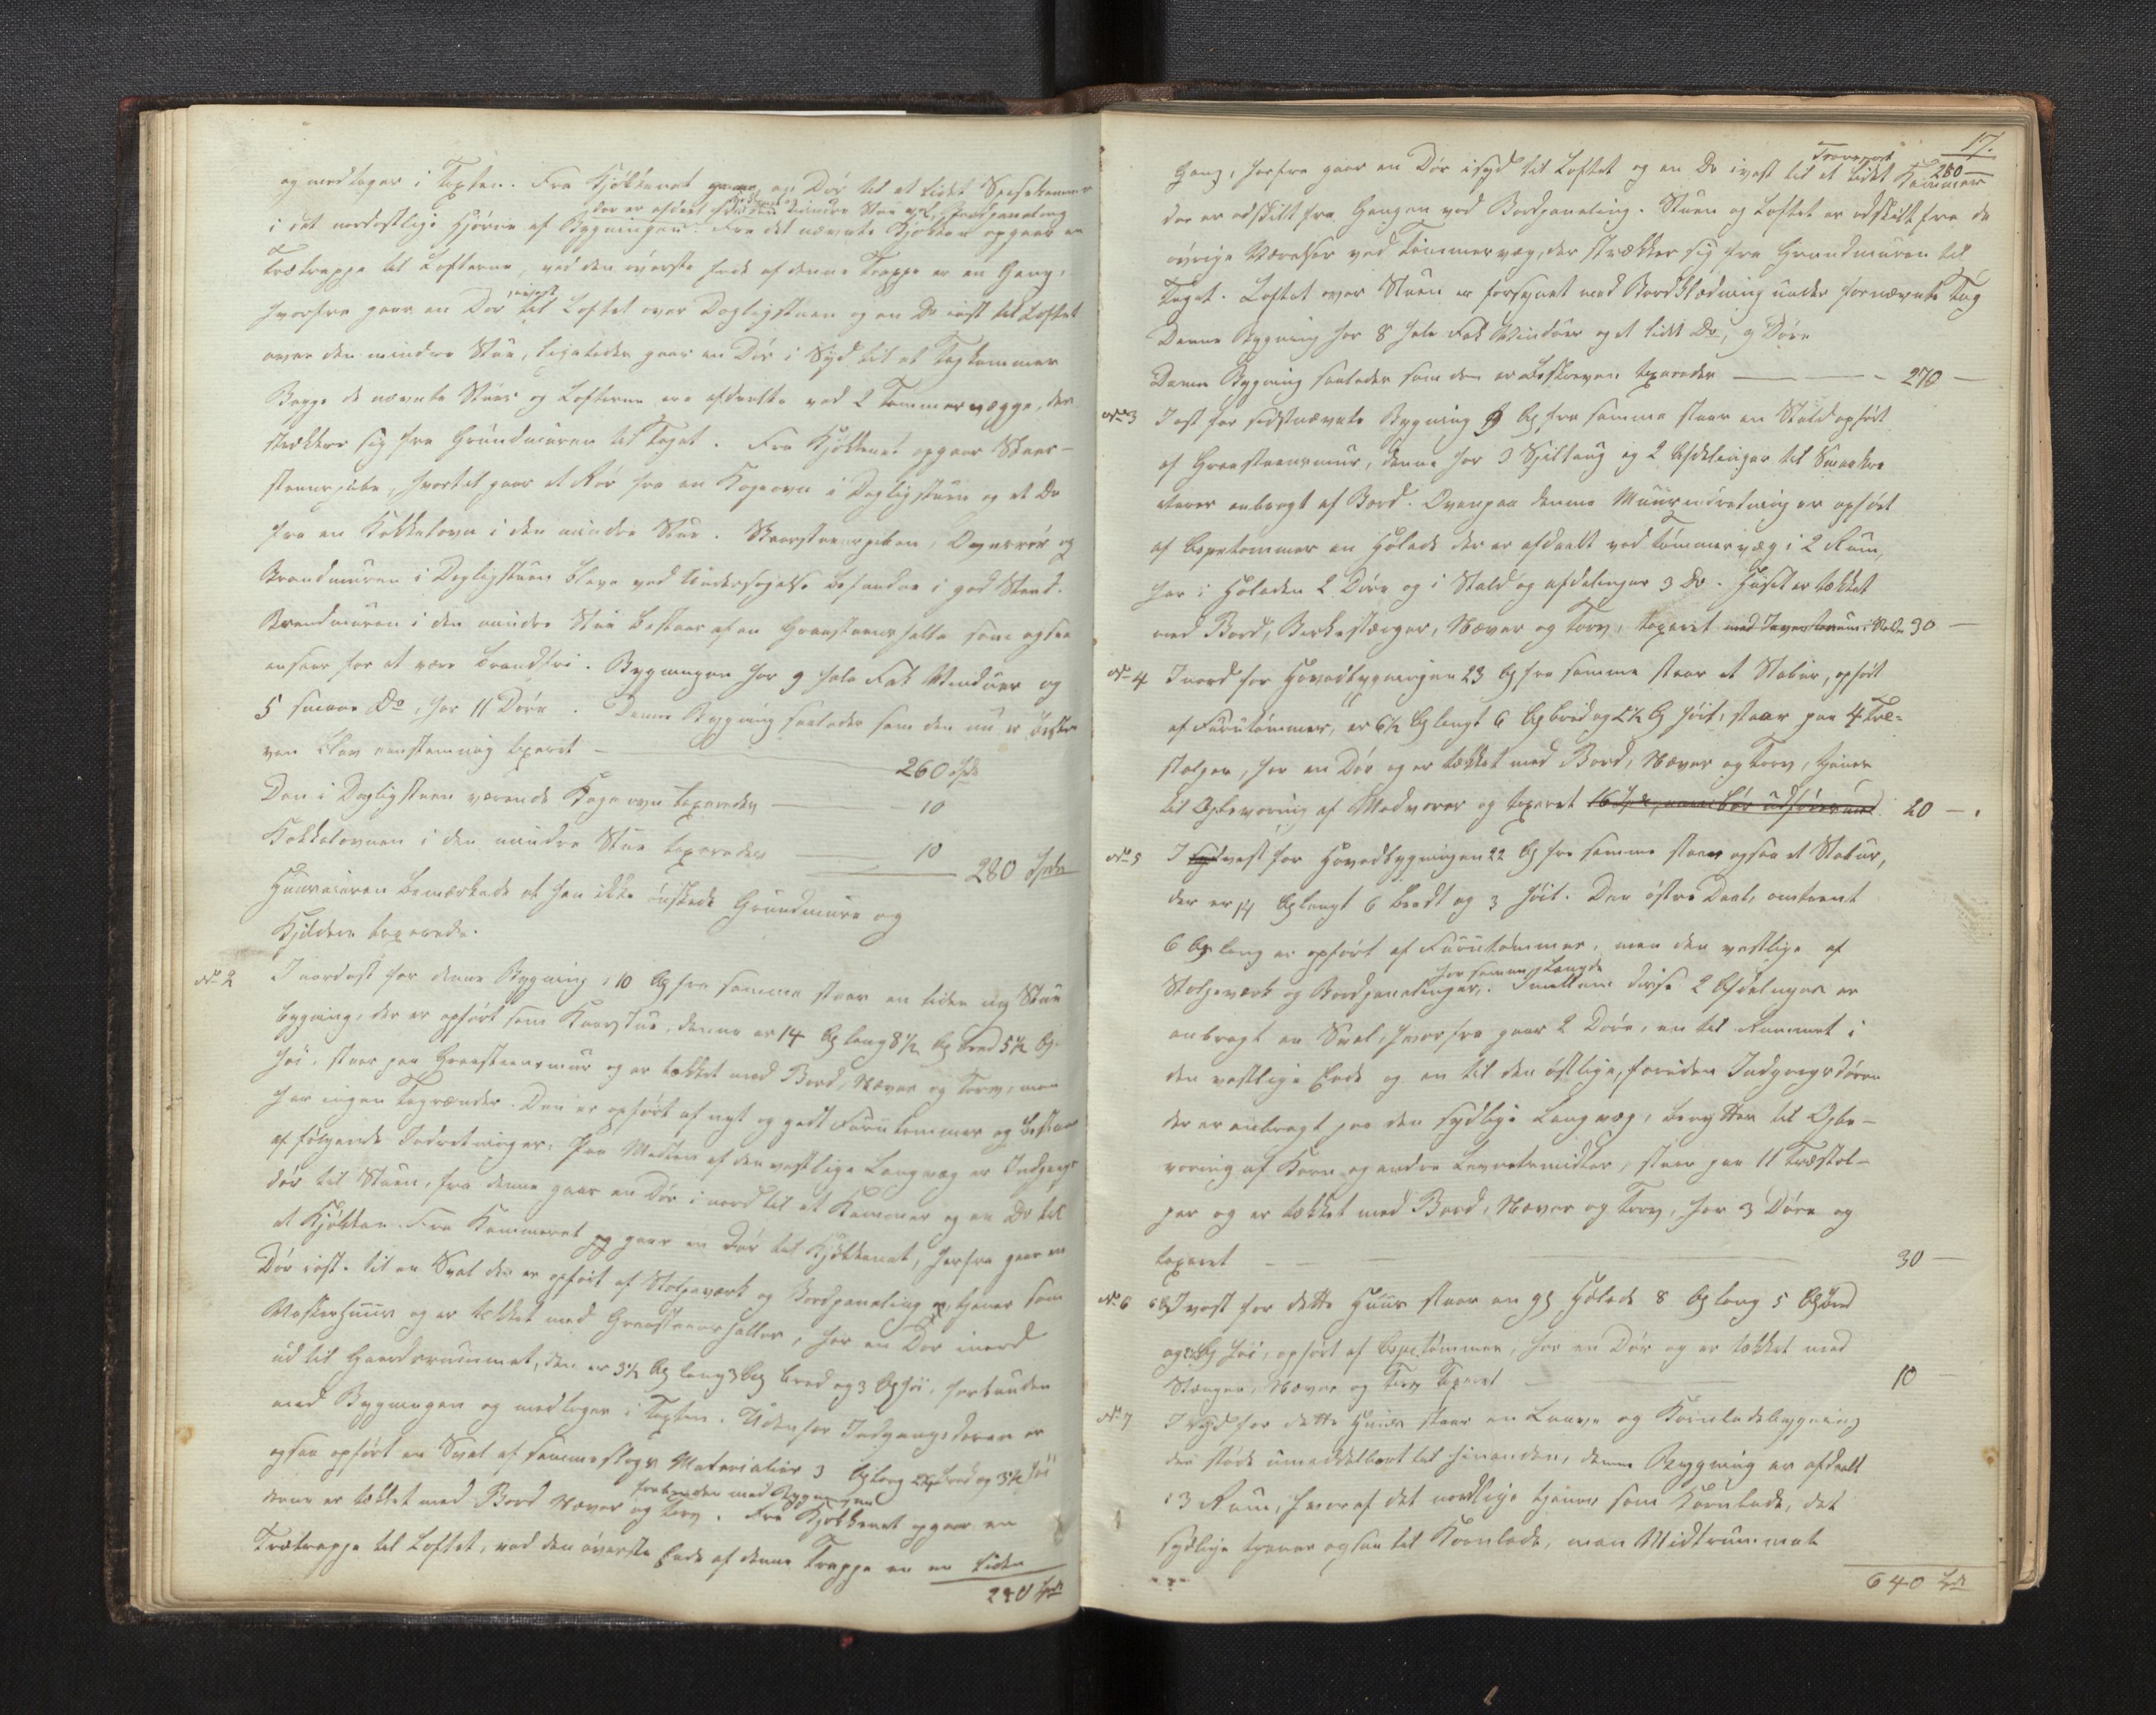 og medtages i Taxten. Fra Kjøkkenet gaaer en Dør til et lidet Spisekammer
der er afdeelt fra den mindre Stue ved Bordpaneling
i det nordostlige Hjørne af Bygningen. Fra det nævnte Kjøkken opgaar en
Trætrappe til Lofterne, ved den øverste Ende af denne Trappe er en Gang,
hvorfra gaar en Dør i vest til Loftet over Dagligstuen og en Do i øst til Loftet
over den mindre Stue, ligeledes gaar en Dør i Syd til et Tagkammer
Begge de nævnte Stuer og Lofterne ere afdeelte ved 2 Tømmervægge, der
strækker sig fra Grundmuren til Taget. Fra Kjøkkenet opgaar Skor-
steenspibe, hvortil gaar et Rør fra en Kogeovn i Dagligstuen og et Do
fra en Kakkelovn i den mindre Stue. Skorsteenspiben, Ovnsrør og
Brandmuren i Dagligstuen bleve ved Undersøgelse befundne i god Stand.
Brandmuren i den mindre Stue bestaar af en Graasteenshelle som ogsaa
ansees for at være brandfri. Bygningen har 9 hele Fak Vinduer og
5 smaae Do, har 11 Døre. Denne Bygning saaledes som den nu er beskre-
ven blev eenstemmig taxeret 260 Spd
Den i Dagligstuen værende Kogeovn taxeredes 10
Kakkelovnen i den mindre Stue taxeredes 10
280 Spd
Huuseieren bemærkede at han ikke ønskede Grundmure og
Kjeldere taxerede.
No 2 I nordost for denne Bygning, 10 Al fra samme staar en liden ny Stue
bygning, der er opført som Kaarstue, denne er 14 Al lang 8½ Al bred 5½ Al
høi, staar paa Graasteensmur og er tækket med Bord, Næver og Torv, men
har ingen Tagrænder. Den er opført af nyt og godt Furutømmer og bestaar
af følgende Indretninger: Paa Midten af den vestlige Langvæg er Indgangs
dør til Stuen, fra denne gaar en Dør i nord til et Kammer og en Do til
et Kjøkken. Fra Kammeret gaar en Dør til Kjøkkenet, herfra gaar en
Dør i øst til en Sval der er opført af Stolpeværk og Bordpaneling, tjener som
Vaskerhuus og er tækket med Graasteensheller, har en Dør i nord
ud til Gaardsrummet, den er 3½ Al lang 3 Al bred og 3 Al høi, forbunden
med Bygningen og medtages i Taxten. Udenfor Indgangsdøren er
ogsaa opført en Sval af sammeslags Materialier 3 Al lang 2 Al bred og 3½ høi
forbunden med Bygningen
denne er tækket med Bord Næver og Torv. Fra Kjøkkenet opgaar en
Trætrappe til Loftet, ved den øverste Ende af denne Trappe er en liden
280 Spd
17.
Transport
280
Gang, herfra gaar en Dør i syd til Loftet og en Do i vest til et lidet Kammer
der er adskilt fra Gangen ved Bordpaneling. Stuen og Loftet er adskilt fra de
øvrige Værelser ved Tømmervæg, der strækker sig fra Grundmuren til
Taget. Loftet over Stuen er forsynet med Bordklædning under fornævnte Tag
Denne Bygning har 8 hele Fak Vinduer og et lidet Do, 9 Døre
Denne Bygning saaledes som den er beskreven taxeredes 270
No 3 I øst for sidstnævnte Bygning 9 Al fra samme staar en Stald opført
af Graasteensmur, denne har 3 Spiltaug og 2 Afdelinger til Smaakre
aturer anbragt af Bord. Ovenpaa denne Muurindretning er opført
af Aspetømmer en Hølade der er afdeelt ved Tømmervæg i 2 Rum,
har i Høladen 2 Døre og i Stald og afdelinger 3 Do. Huset er tækket
med Bord, Birkestænger, Næver og Torv, taxeret 30
No 4 I nord for Hovedbygningen 23 Al fra samme staar et Stabur, opført
af Furutømmer, er 6½ Al langt 6 Al bred og 2½ Al høit, staar paa 4 Træ-
stolper, har en Dør og er tækket med Bord, Næver og Torv, tjener
til Opbevaring af Madvarer og taxeret 20
No 5 I vest for Hovedbygningen 22 Al fra samme staar ogsaa et Stabur,
der er 14 Al langt 6 bredt og 3 høit. Den østre Deel, omtrent
6 Al lang er opført af Furutømmer, men den vestlige af
har samme Længde
Stolpeværk og Bordpanelinger. Imellem disse 2 Afdelinger er
anbragt en Sval, hvorfra gaar 2 Døre, en til Rummet i
den vestlige Ende og en til den østlige, foruden Indgangsdøren
der er anbragt paa den sydlige Langvæg, benyttes til Opbe-
varing af Korn og andre Levnetsmidler, staar paa 11 Træstol-
per og er tækket med Bord, Næver og Torv, har 3 Døre og
taxeret 30
No 6 I vest for dette Huus staar en Hølade 8 Al lang 5 Al bred
og Al høi, opført af Aspetømmer, har en Dør og er tækket med
Stænger, Næver og Torv Taxeret 10
No 7 I Syd for dette Huus staar en Laave og Kornladebygning
der støde umiddelbart til hinanden, denne Bygning er afdeelt
i 3 Rum, hvoraf det nordlige tjener som Kornlade, det
sydlige tjener ogsaa til Kornlade, men Midtrummet
640 Spd